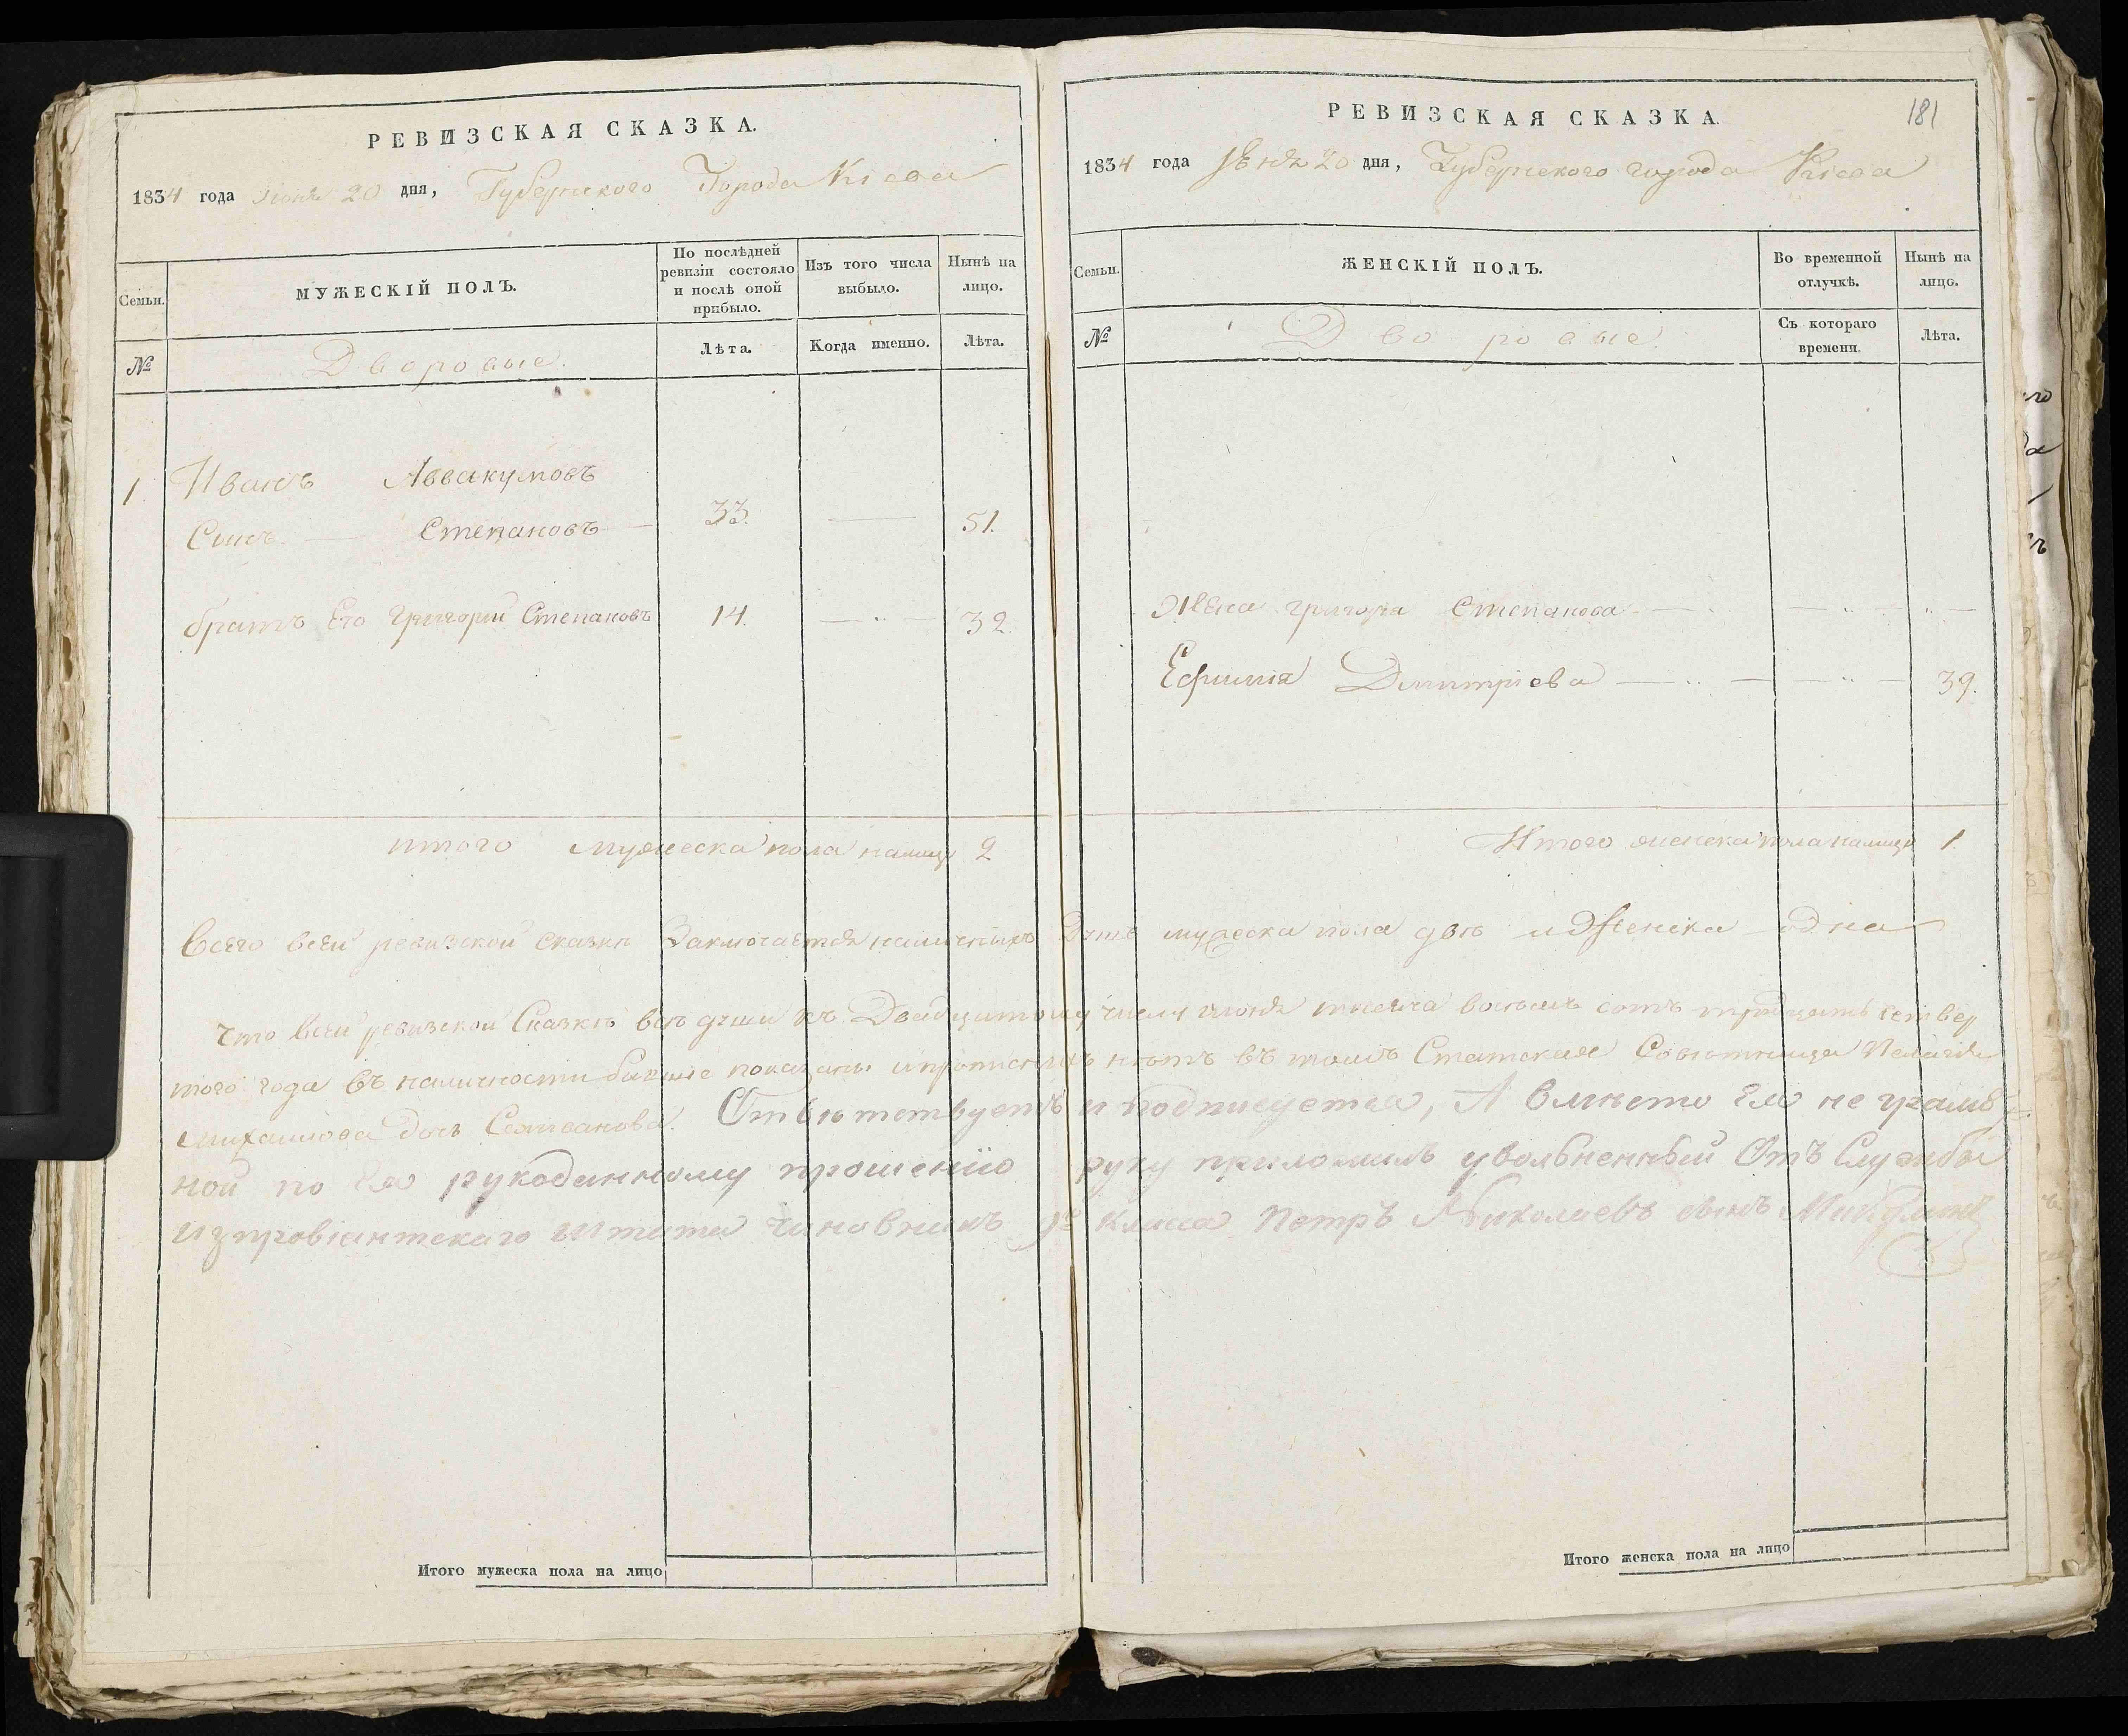 РЕВИЗСКАЯ СКАЗКА.
1834 года июня 20 дня, Губернского Города Кіева
Семьи.
МУЖЕСКІЙ ПОЛЪ.
По послѣдней ревизіи состояло и послѣ оной прибыло.
Изъ того числа выбыло.
Нынѣ на лицо.
№
Дворовые.
Лѣта.
Когда именно.
Лѣта.
1 Иванъ Аввакумовъ
Сынъ Степановъ 33. 51.
братъ Его Григорий Степановъ 14. 32.
итого мужеска пола налицо 2
181
РЕВИЗСКАЯ СКАЗКА.
1834 года Июня 20 дня, Губернского города Кіева
Семьи.
ЖЕНСКІЙ ПОЛЪ.
Во временной отлучкѣ.
Нынѣ на лицо.
№
Дворовые
Съ котораго времени.
Лѣта.
Жена григорія Степанова
Ефимия Дмитріева 39.
Итого женска пола налицо 1.
Всего всеи ревизскои сказки Заключается наличныхъ Душъ мужеска пола двѣ и Женска одна
что всеи ревизскои Сказкѣ всѣ души къ Двадцатому числу июня тысяча восемь сотъ тридцать четвер
того года въ наличности бывшие показаны и прописныхъ нѣтъ въ томъ Статская Совѣтница Пелагія
михаилова дочь Отвѣтствуетъ и подписуется, А вмѣсто Ея не грамо
ной по Ея рукоданному прошенію руку приложилъ увольненный Отъ Службы
изъ провіантскаго Штата чиновникъ класса Петръ Николаевъ сынъ
Итого мужеска пола на лицо
Итого женска пола на лицо